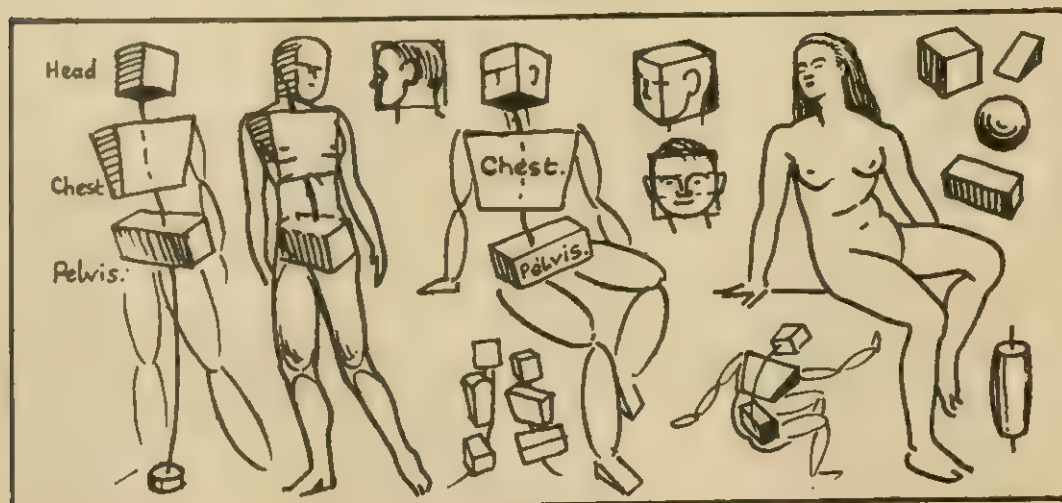 Head
Chest
Pelvis.
Chest.
Pelvis.